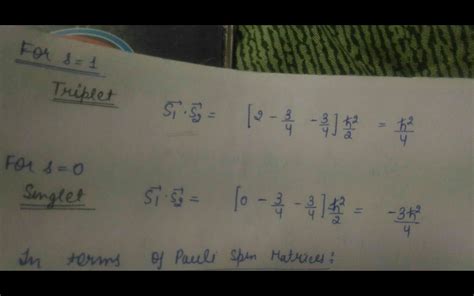 For s=1
Triplet
S⃗₁·S⃗₂ = [2 - 3/4 - 3/4] ℏ²/2 = ℏ²/4
For s=0
Singlet
S⃗₁·S⃗₂ = [0 - 3/4 - 3/4] ℏ²/2 = -3ℏ²/4
In terms of Pauli Spin Matrices: